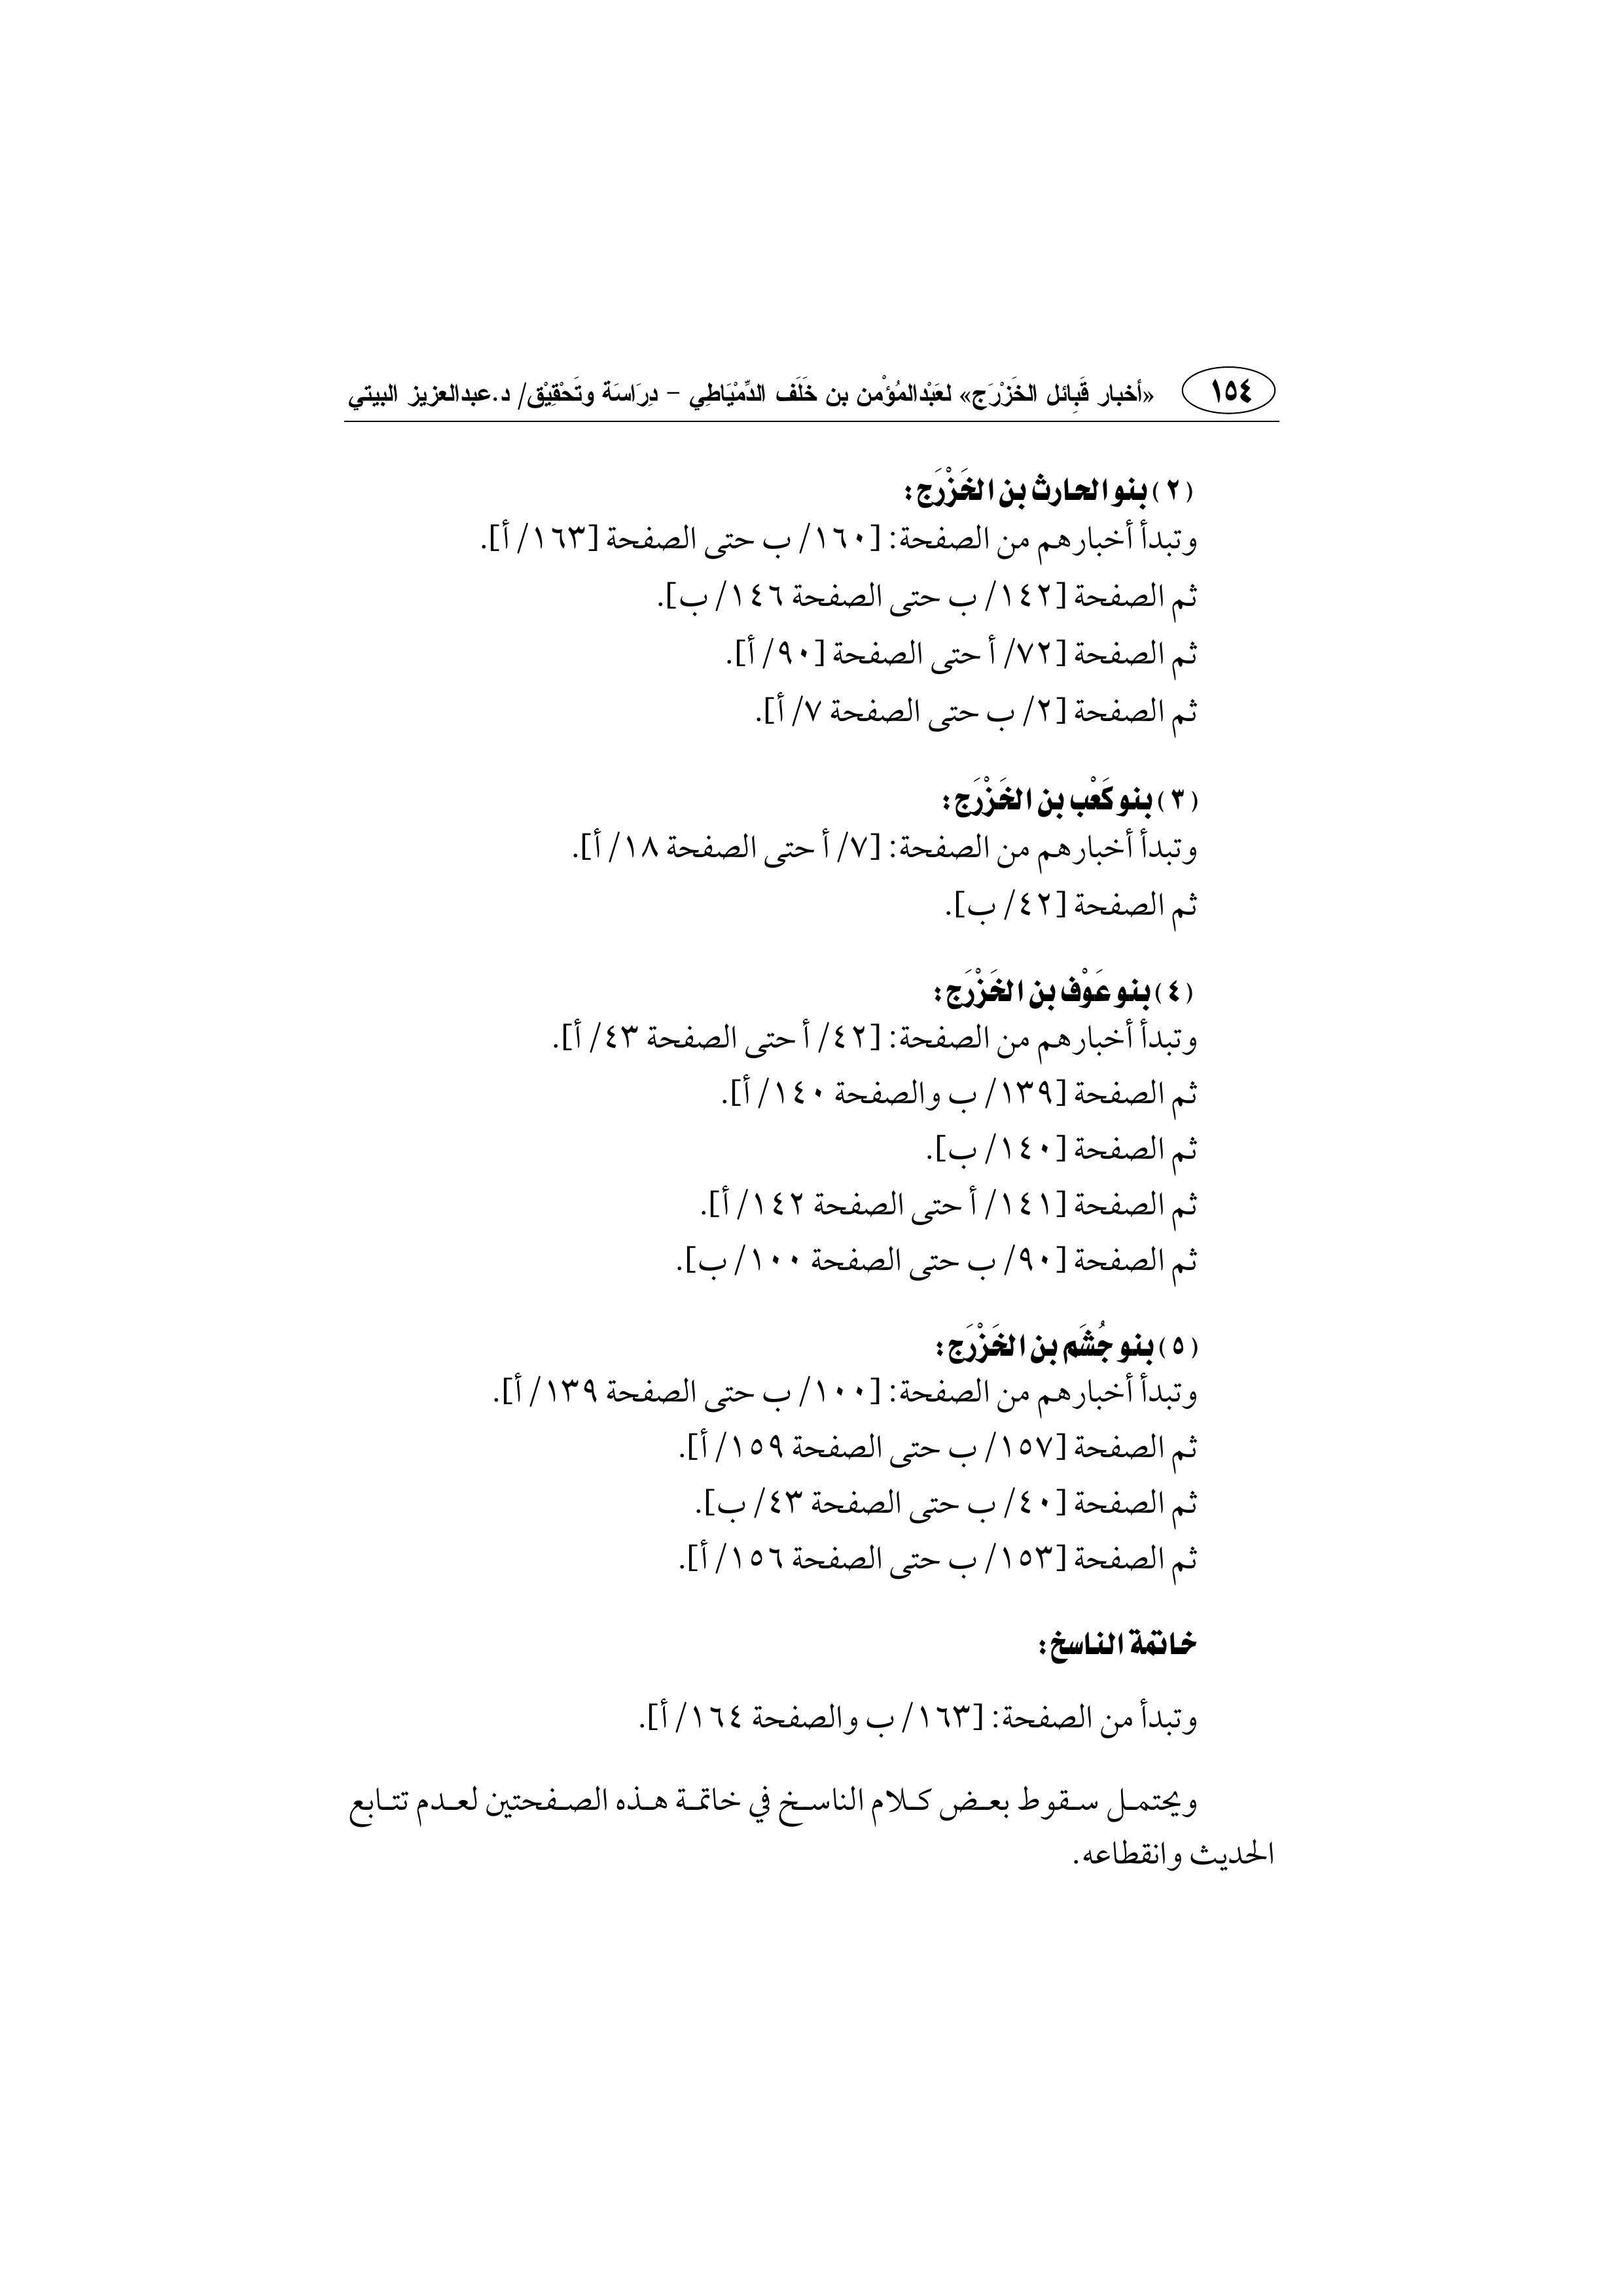 ١٥٤ «أخبار قَبِائل الخَزْرَج» لعَبْدالمُؤْمن بن خَلَف الدِّمْيَاطِي – دِرَاسَة وتَحْقِيْق/ د.عبدالعزيز البيتي
(٢) بنو الحارث بن الخَزْرَج:
وتبدأ أخبارهم من الصفحة: [١٦٠/ ب حتى الصفحة [١٦٣/ أ].
ثم الصفحة [١٤٢/ ب حتى الصفحة ١٤٦/ ب].
ثم الصفحة [٧٢/ أ حتى الصفحة [٩٠/ أ].
ثم الصفحة [٢/ ب حتى الصفحة ٧/ أ].
(٣) بنو كَعْب بن الخَزْرَج:
وتبدأ أخبارهم من الصفحة: [٧/ أ حتى الصفحة ١٨/ أ].
ثم الصفحة [٤٢/ ب].
(٤) بنو عَوْف بن الخَزْرَج:
وتبدأ أخبارهم من الصفحة: [٤٢/ أ حتى الصفحة ٤٣/ أ].
ثم الصفحة [١٣٩/ ب والصفحة ١٤٠/ أ].
ثم الصفحة [١٤٠/ ب].
ثم الصفحة [١٤١/ أ حتى الصفحة ١٤٢/ أ].
ثم الصفحة [٩٠/ ب حتى الصفحة ١٠٠/ ب].
(٥) بنو جُشَم بن الخَزْرَج:
وتبدأ أخبارهم من الصفحة: [١٠٠/ ب حتى الصفحة ١٣٩/ أ].
ثم الصفحة [١٥٧/ ب حتى الصفحة ١٥٩/ أ].
ثم الصفحة [٤٠/ ب حتى الصفحة ٤٣/ ب].
ثم الصفحة [١٥٣/ ب حتى الصفحة ١٥٦/ أ].
خاتمة الناسخ:
وتبدأ من الصفحة: [١٦٣/ ب والصفحة ١٦٤/ أ].
ويحتمـل سـقوط بعـض كـلام الناسـخ في خاتمـة هـذه الصـفحتين لعـدم تتـابع
الحديث وانقطاعه.